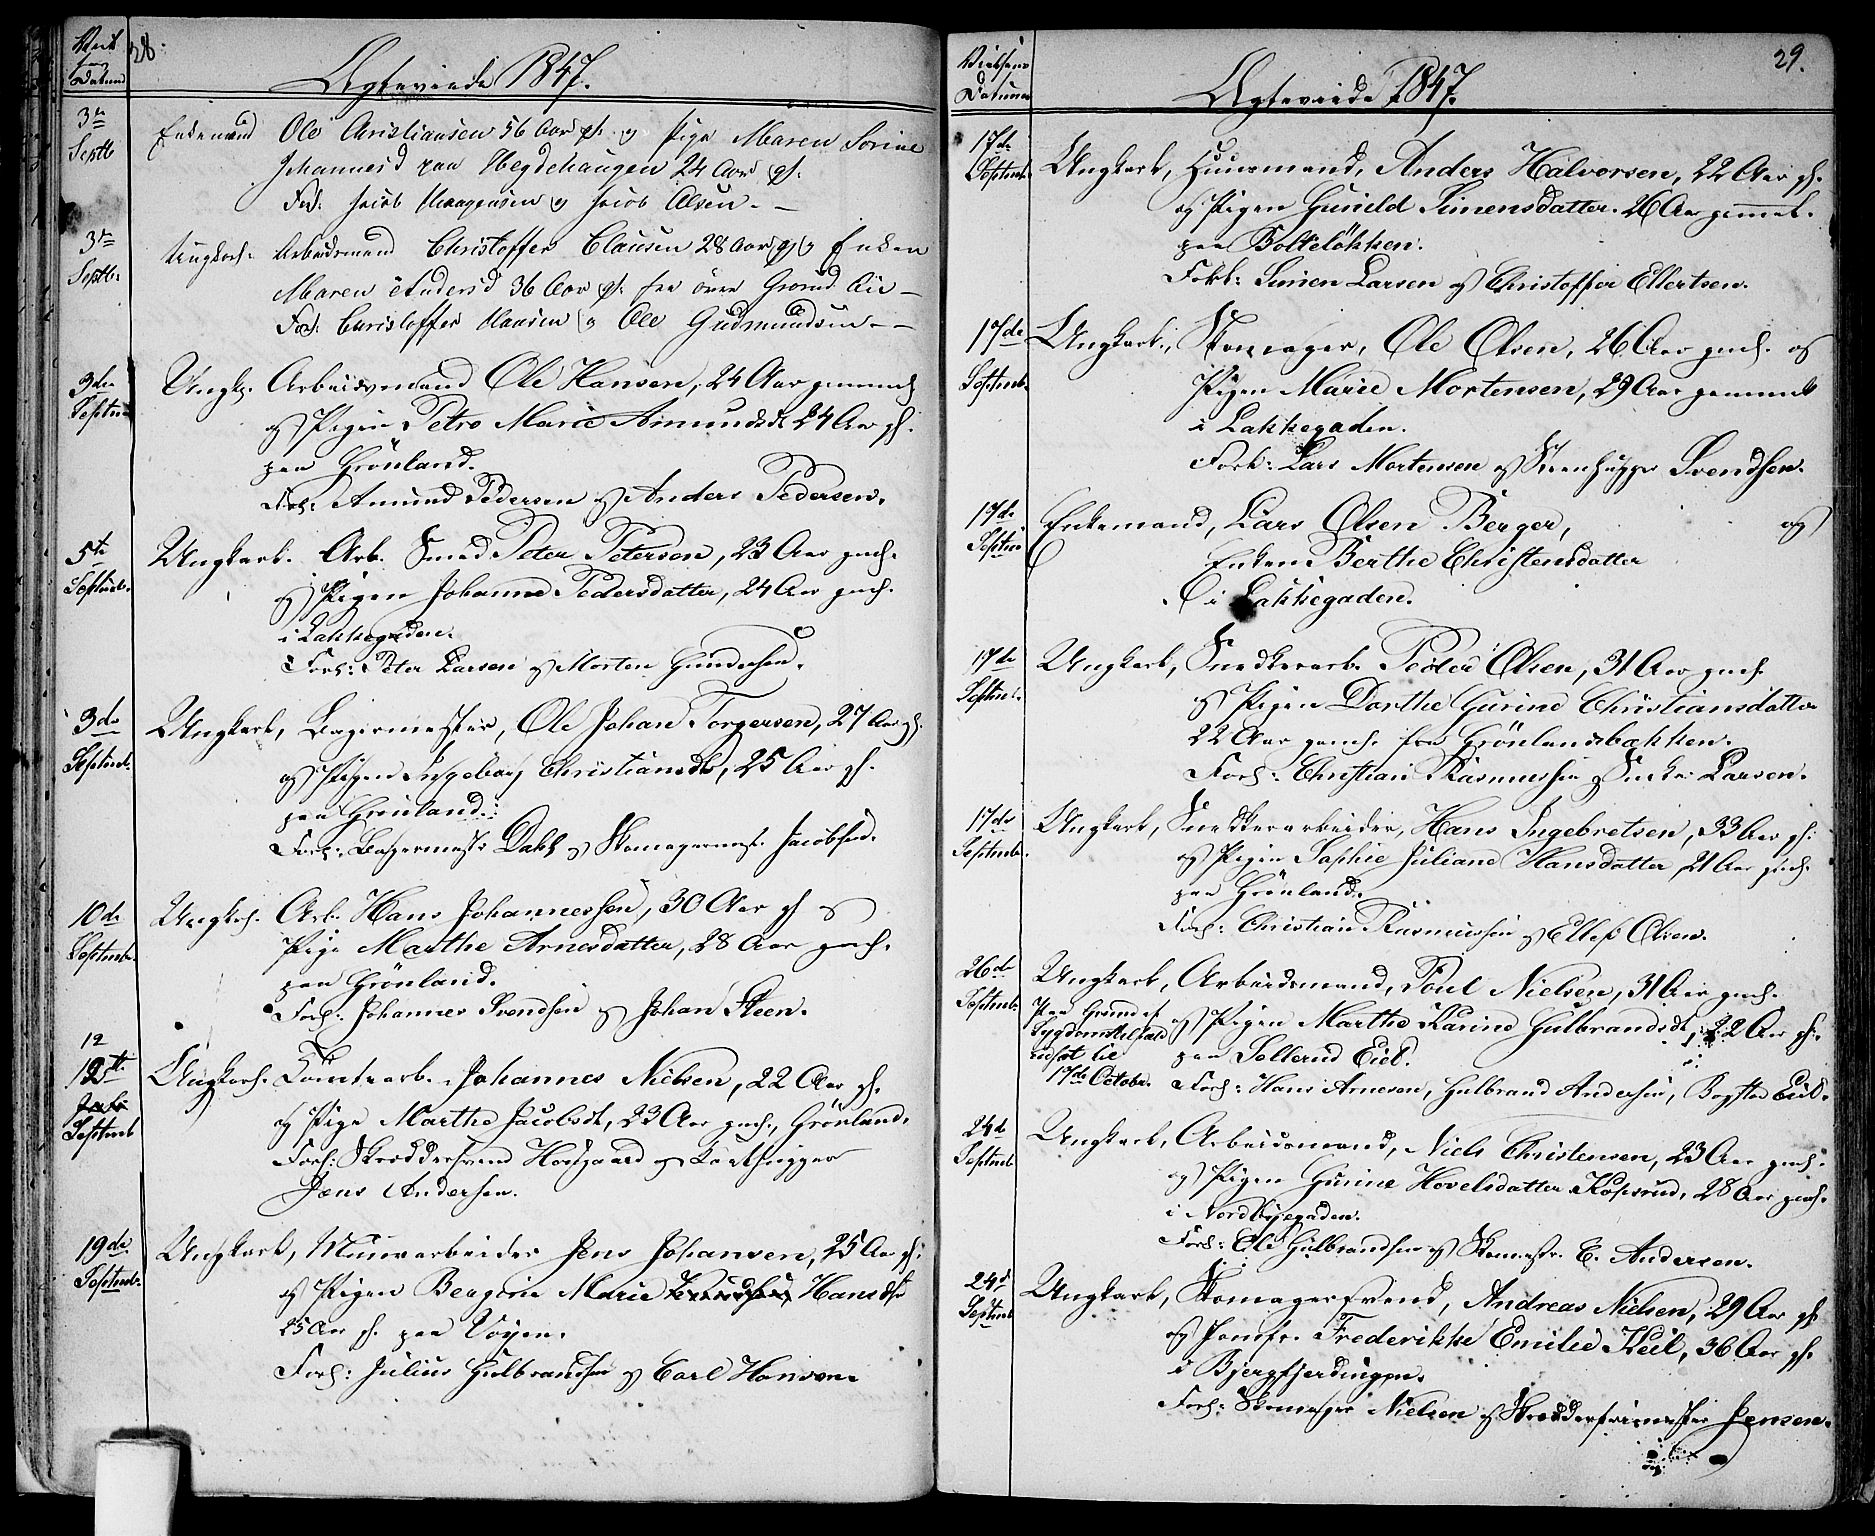 28.
Datum
Ægteviede 1847.
3die Septb Enkemand Ole Christiansen 56 Aar gl. og Pige Maren Sorine
Johannesd paa Hegdehaugen 24 Aar gl.
Forl: Jacob Haagensen og Jacob Olsen -
3die Septb: Ungkarl. Arbeidsmand Christoffer Clausen 28 Aar gl. og Enken
Maren Andersd 36 Aar gl. fra övre Grönd
Forl: Christoffer Hansen og Ole Gudmundsen -
3die Septem Ungk. Arbeidsmand Ole Hansen, 24 Aar gammel
og Pigen Petro Marie Amundsdt 24 Aar gl.
paa Grönland.
Forl: Amund Pedersen og Anders Pedersen.
5te Septemb. Ungkarl. Arb. Smed Peter Petersen, 23 Aar gml.
og Pigen Johanne Pedersdatter, 24 Aar gml.
i Lakkegaden.
Forl: Peter Larsen og Morten Gundersen.
3die Septemb. Ungkarl, Bagermester, Ole Johan Torgersen, 27 Aar gl.
og Pigen Ingeborg Christiansdt, 25 Aar gl.
paa Grönland.
Forl: Bagermestr Dahl og Skomagermest. Jacobsen.
10de Septemb. Ungkarl. Arb. Hans Johannessen, 30 Aar gl og
Pige Marthe Arnesdatter, 28 Aar gml.
paa Grönland.
Forl: Johannes Svendsen og Johan Steen.
12
12te Septemb Ungkarl. Tömterarb. Johannes Nielsen, 22 Aar gl.
og Pige Marthe Jacobsdt, 23 Aar gml., Grönland.
Forl: Skræddersvend Hovgaard og
Jens Andersen.
19de Septemb. Ungkarl, Muurarbeider Jens Johansen, 25 Aar gl.
og Pigen Bergine Marie Hansdtr
25 Aar gl. paa Vöyen.
Forl: Julius Gulbrandsen og Carl Hansen.
29.
Vielsens Datum
Ægteviede 1847.
17de Septemb. Ungkarl, Huusmand, Anders Halvorsen, 22 Aar gl.
og Pigen Gunild Simensdatter. 26 Aar gammel.
paa Bolteløkken.
Forl: Simen Larsen og Christoffer Ellertsen.
17de Septemb. Ungkarl, Skomager, Ole Olsen, 26 Aar gml. og
Pigen Marie Mortensen, 29 Aar gammel
i Lakkegaden.
Forl: Lars Mortensen og Steenhugger Svendsen.
17de Septem Enkemand, Lars Olsen Berger, og
Enken Berthe Christensdatter
i Lakkegaden.
17de Septem. Ungkarl, Snedkerarb. Peder Olsen, 31 Aar gml.
og Pigen Dorthe Gurine Christiansdatter
22 Aar gml. fra Grönlandsbakken.
Forl: Christian Rasmussen og Snedker Larsen.
17de Septemb. Ungkarl, Snedkerarbeider, Hans Ingebretsen, 33 Aar gl:
og Pigen Sophie Juliane Hansdatter, 21 Aar gml.
paa Grönland.
Forl: Christian Rasmussen og Ellef Olsen.
26de Septemb. Ungkarl, Arbeidsmand, Poul Nielsen, 31 Aar gml.
Paa Grund af Sygdomstilfæld og Pigen Marthe Karine Gulbrandsdt, 22 Aar gl.
17de Octobr. paa Sellerud Eied.
Forl: Hans Arnesen, Gulbrand Andersen, Bogstad Eied.
24d Septemb Ungkarl, Arbeidsmand, Niels Christensen, 23 Aar gml.
og Pigen Gurine Hovelsdatter Kopsrud, 28 Aar gml.
i Nordbyegaden.
Forl: Ole Gulbrandsen og Skomestr. E. Andersen.
24d Septemb Ungkarl, Skomagersvend, Andreas Nielsen, 29 Aar gl
og Jomfr. Frederikke Emilie Keil, 36 Aar gl.
i Bjergfjerdingen.
Forl: Skomager Nielsen og Skræddermester Jensen.